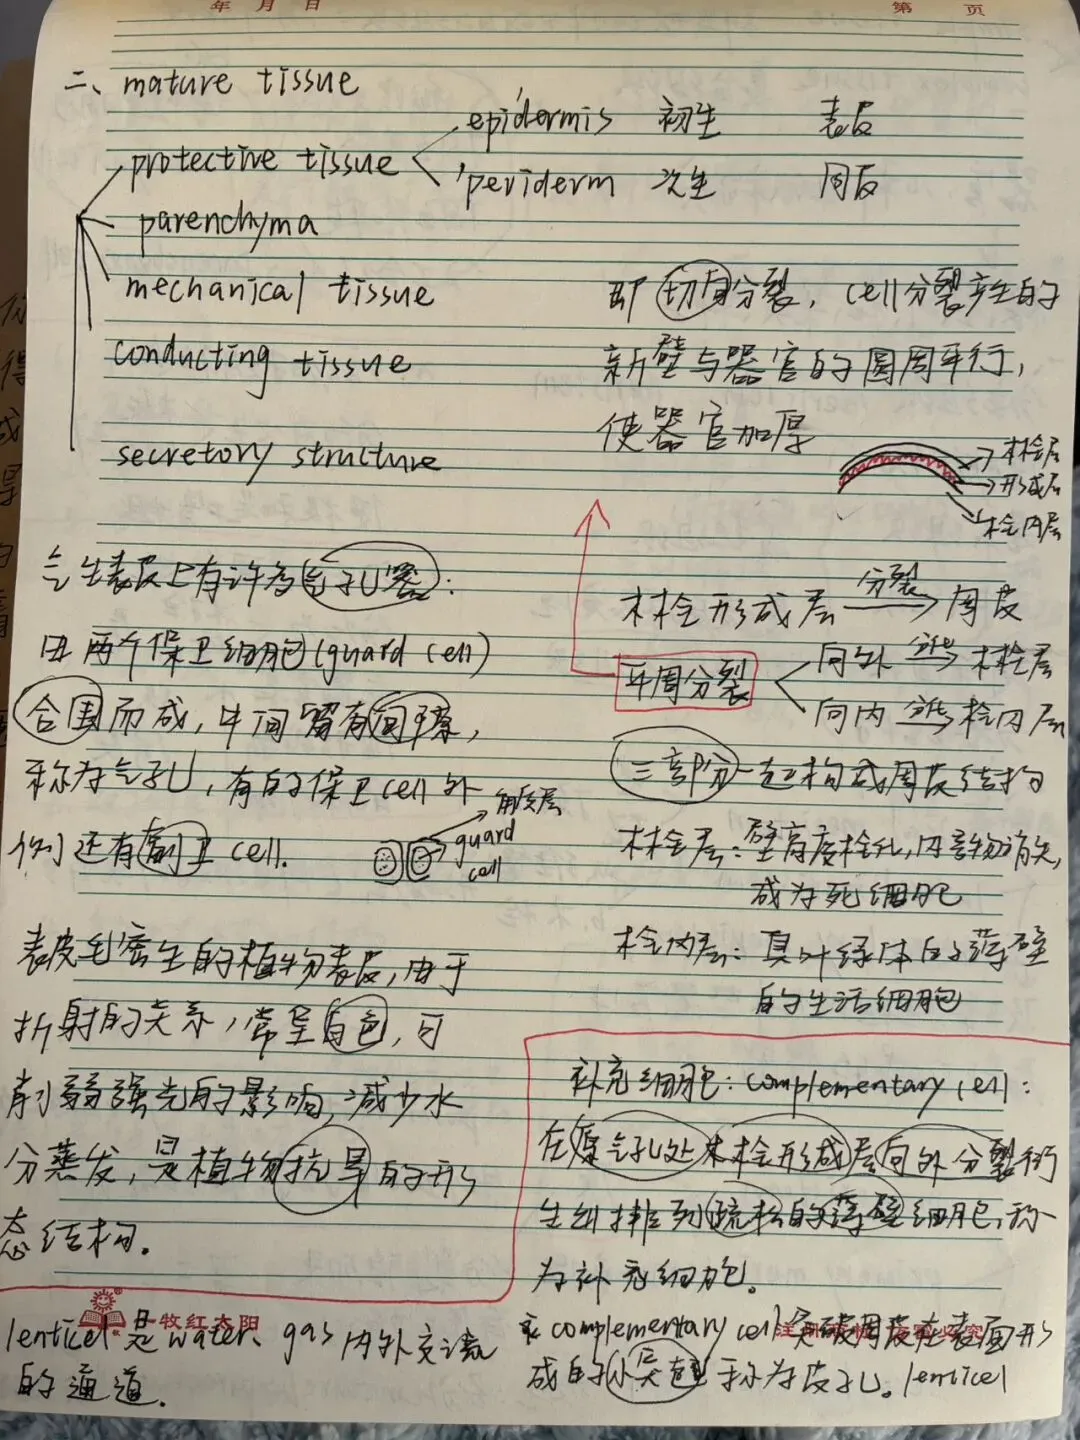 年 月 日
第 页
二、mature tissue
protective tissue
epidermis 初生 表皮
periderm 次生 周皮
parenchyma
mechanical tissue
conducting tissue
secretory structure
即切向分裂，cell分裂产生的
新壁与器官的圆周平行，
使器官加厚
木栓层
形成层
栓内层
气生表皮上有许多气孔器：
由两个保卫细胞(guard cell)
合围而成，中间留有间隙，
称为气孔，有的保卫cell外
侧还有副卫cell.
角质层
guard
cell
表皮毛密生的植物表皮，由于
折射的关系，常呈白色，可
削弱强光的影响，减少水
分蒸发，是植物抗旱的形
态结构.
木栓形成层 分裂 周皮
平周分裂
向外 分化 木栓层
向内 分化 栓内层
三部分一起构成周皮结构
木栓层：壁高度栓化，内含物消失，
成为死细胞
栓内层：具叶绿体的薄壁
的生活细胞
补充细胞：complementary cell：
在原气孔处木栓形成层向外分裂衍
生出排列疏松的薄壁细胞，称
为补充细胞。
complementary cell突破周皮在表面形
成的小突起称为皮孔。lenticel
lenticel是water、gas内外交流
的通道.
牧红太阳